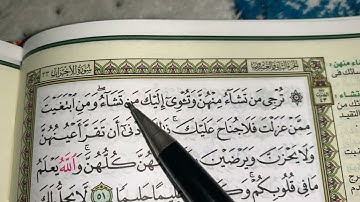 سُورَةُ الْأَحْزَابِ ٣٣
۞ تُرْجِي مَن تَشَاءُ مِنْهُنَّ وَتُؤْوِي إِلَيْكَ مَن تَشَاءُ ۖ وَمَنِ ابْتَغَيْتَ
مِمَّنْ عَزَلْتَ فَلَا جُنَاحَ عَلَيْكَ ۚ ذَٰلِكَ أَدْنَىٰ أَن تَقَرَّ أَعْيُنُهُنَّ
وَلَا يَحْزَنَّ وَيَرْضَيْنَ كُلُّهُنَّ ۚ وَاللَّهُ يَعْلَمُ
مَا فِي قُلُوبِكُمْ حَلِيمًا ٥١ لَّا يَحِلُّ لَكَ